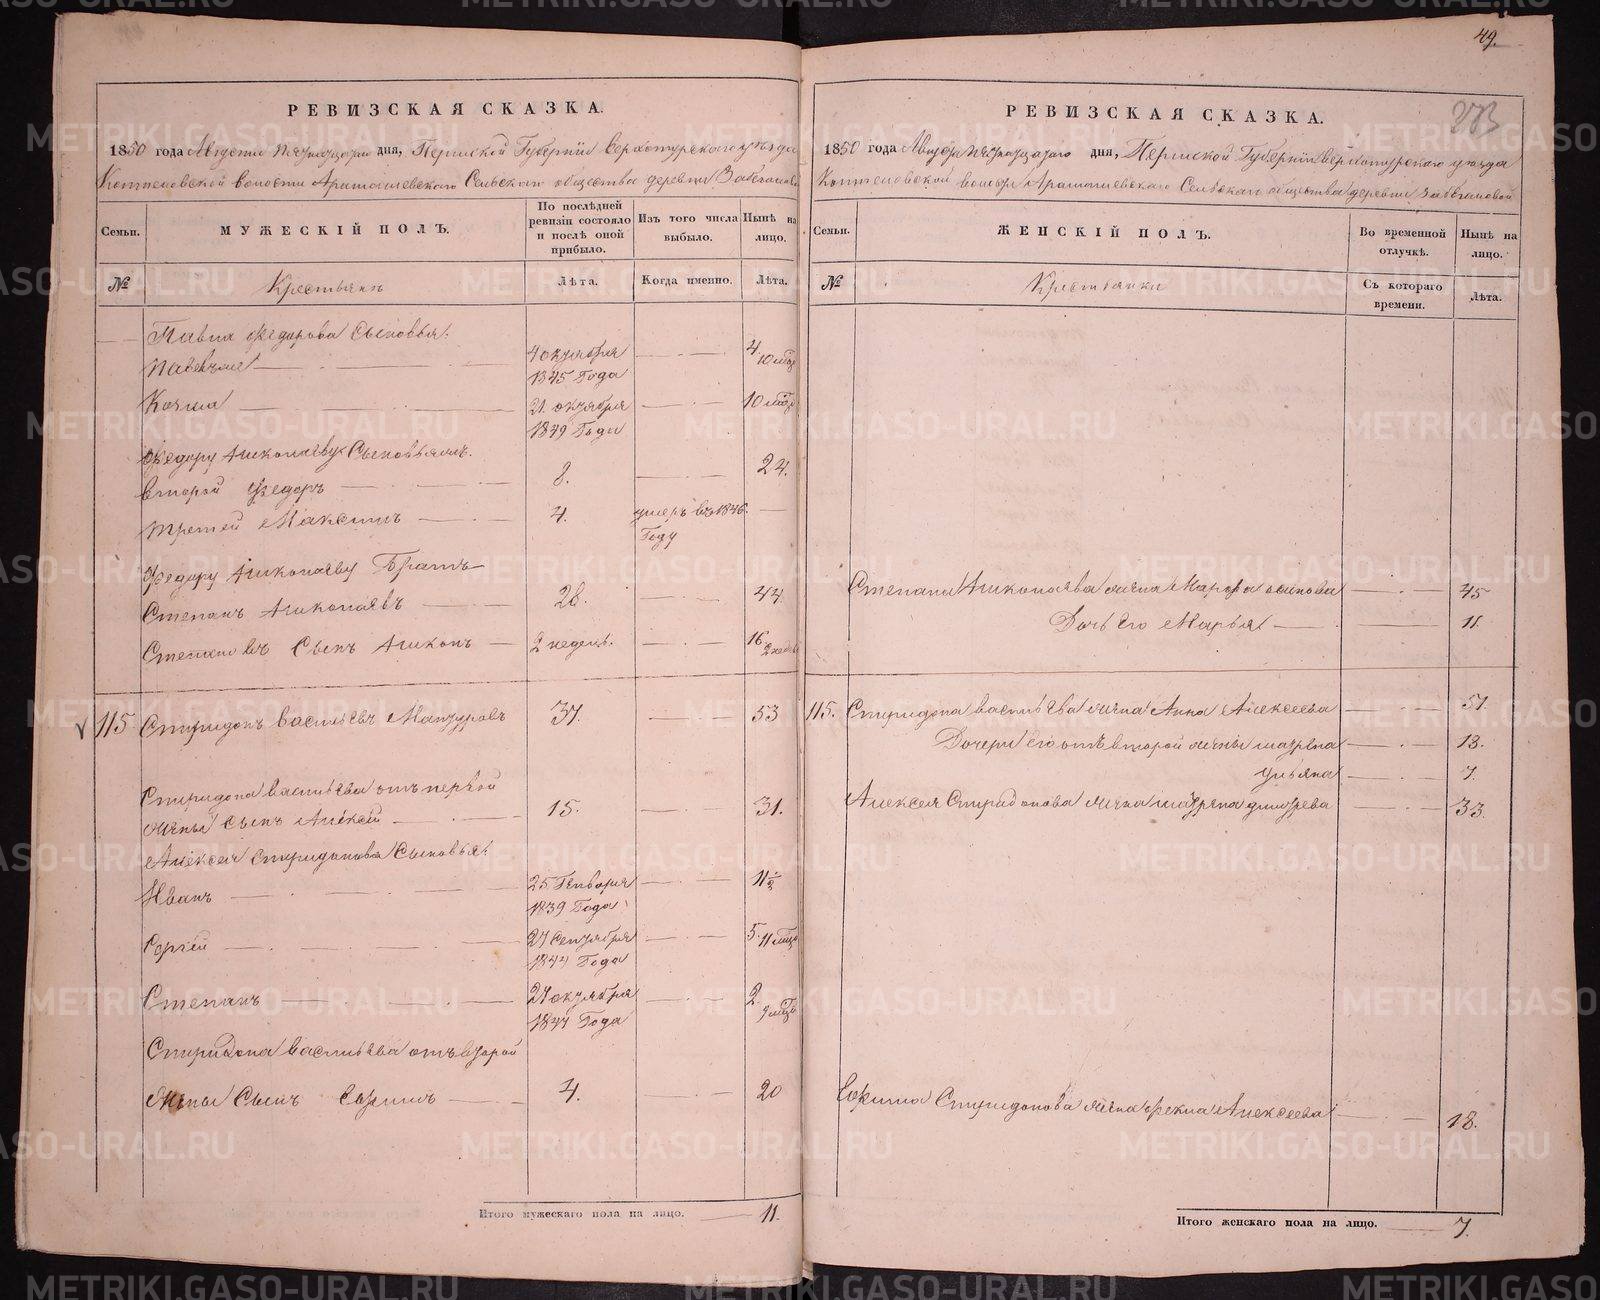 49.
273
РЕВИЗСКАЯ СКАЗКА.
1850 года Августа пятнадцатаго дня, Пермской Губернии Верхотурскаго уезда
Коптеловской волости Арамашевскаго Сельскаго общества деревни
Семьи.
МУЖЕСКІЙ ПОЛЪ.
По послѣдней ревизіи состояло и послѣ оной прибыло.
Изъ того числа выбыло.
Нынѣ на лицо.
№
Крестьянъ
Лѣта.
Когда именно.
Лѣта.
Павла Федорова Сыновья:
4 октября 4 10 мѣс
1845 Года
Козма 21. октября 10 мѣс
1849 Года
Федору Сыновьямъ.
второй Федоръ 8. 24.
третей Максимъ 4. умеръ въ 1846.
Году
Федору Братъ
Степанъ 28. 44.
Степановъ Сынъ 2 недель. 16 2 недел
115 Спиридонъ Васильевъ Манзуровъ 37. 53
Спиридона Васильева отъ первой
жены Сынъ Алексей 15. 31.
Алексея Спиридонова Сыновья:
Иванъ 25 Генваря 11½
1839 Года
Сергей 27 Сентября 5. 11 мѣсц
1844 Года
Степанъ 27 октября 2. 9 мѣсц
1847 Года
Спиридона Васильева отъ второй
жены Сынъ Ефимъ 4. 20
Итого мужескаго пола на лицо. 11.
РЕВИЗСКАЯ СКАЗКА.
1850 года Августа пятнадцатаго дня, Пермской Губернии Верхотурскаго уезда
Коптеловской волости Арамашевскаго Сельскаго общества деревни
Семьи.
ЖЕНСКІЙ ПОЛЪ.
Во временной отлучкѣ.
Нынѣ на лицо.
№
Крестьянки
Съ котораго времени.
Лѣта.
Степана жена Марфа 45
Дочь его Марья 11.
115. Спиридона Васильева жена Анна Алексеева 51.
Дочери его отъ второй жены Маурена 13.
Ульяна 7.
Алексея Спиридонова жена 33.
Ефима Спиридонова жена Фекла Алексеева 18.
Итого женскаго пола на лицо. 7.
METRIKI.GASO-URAL.RU